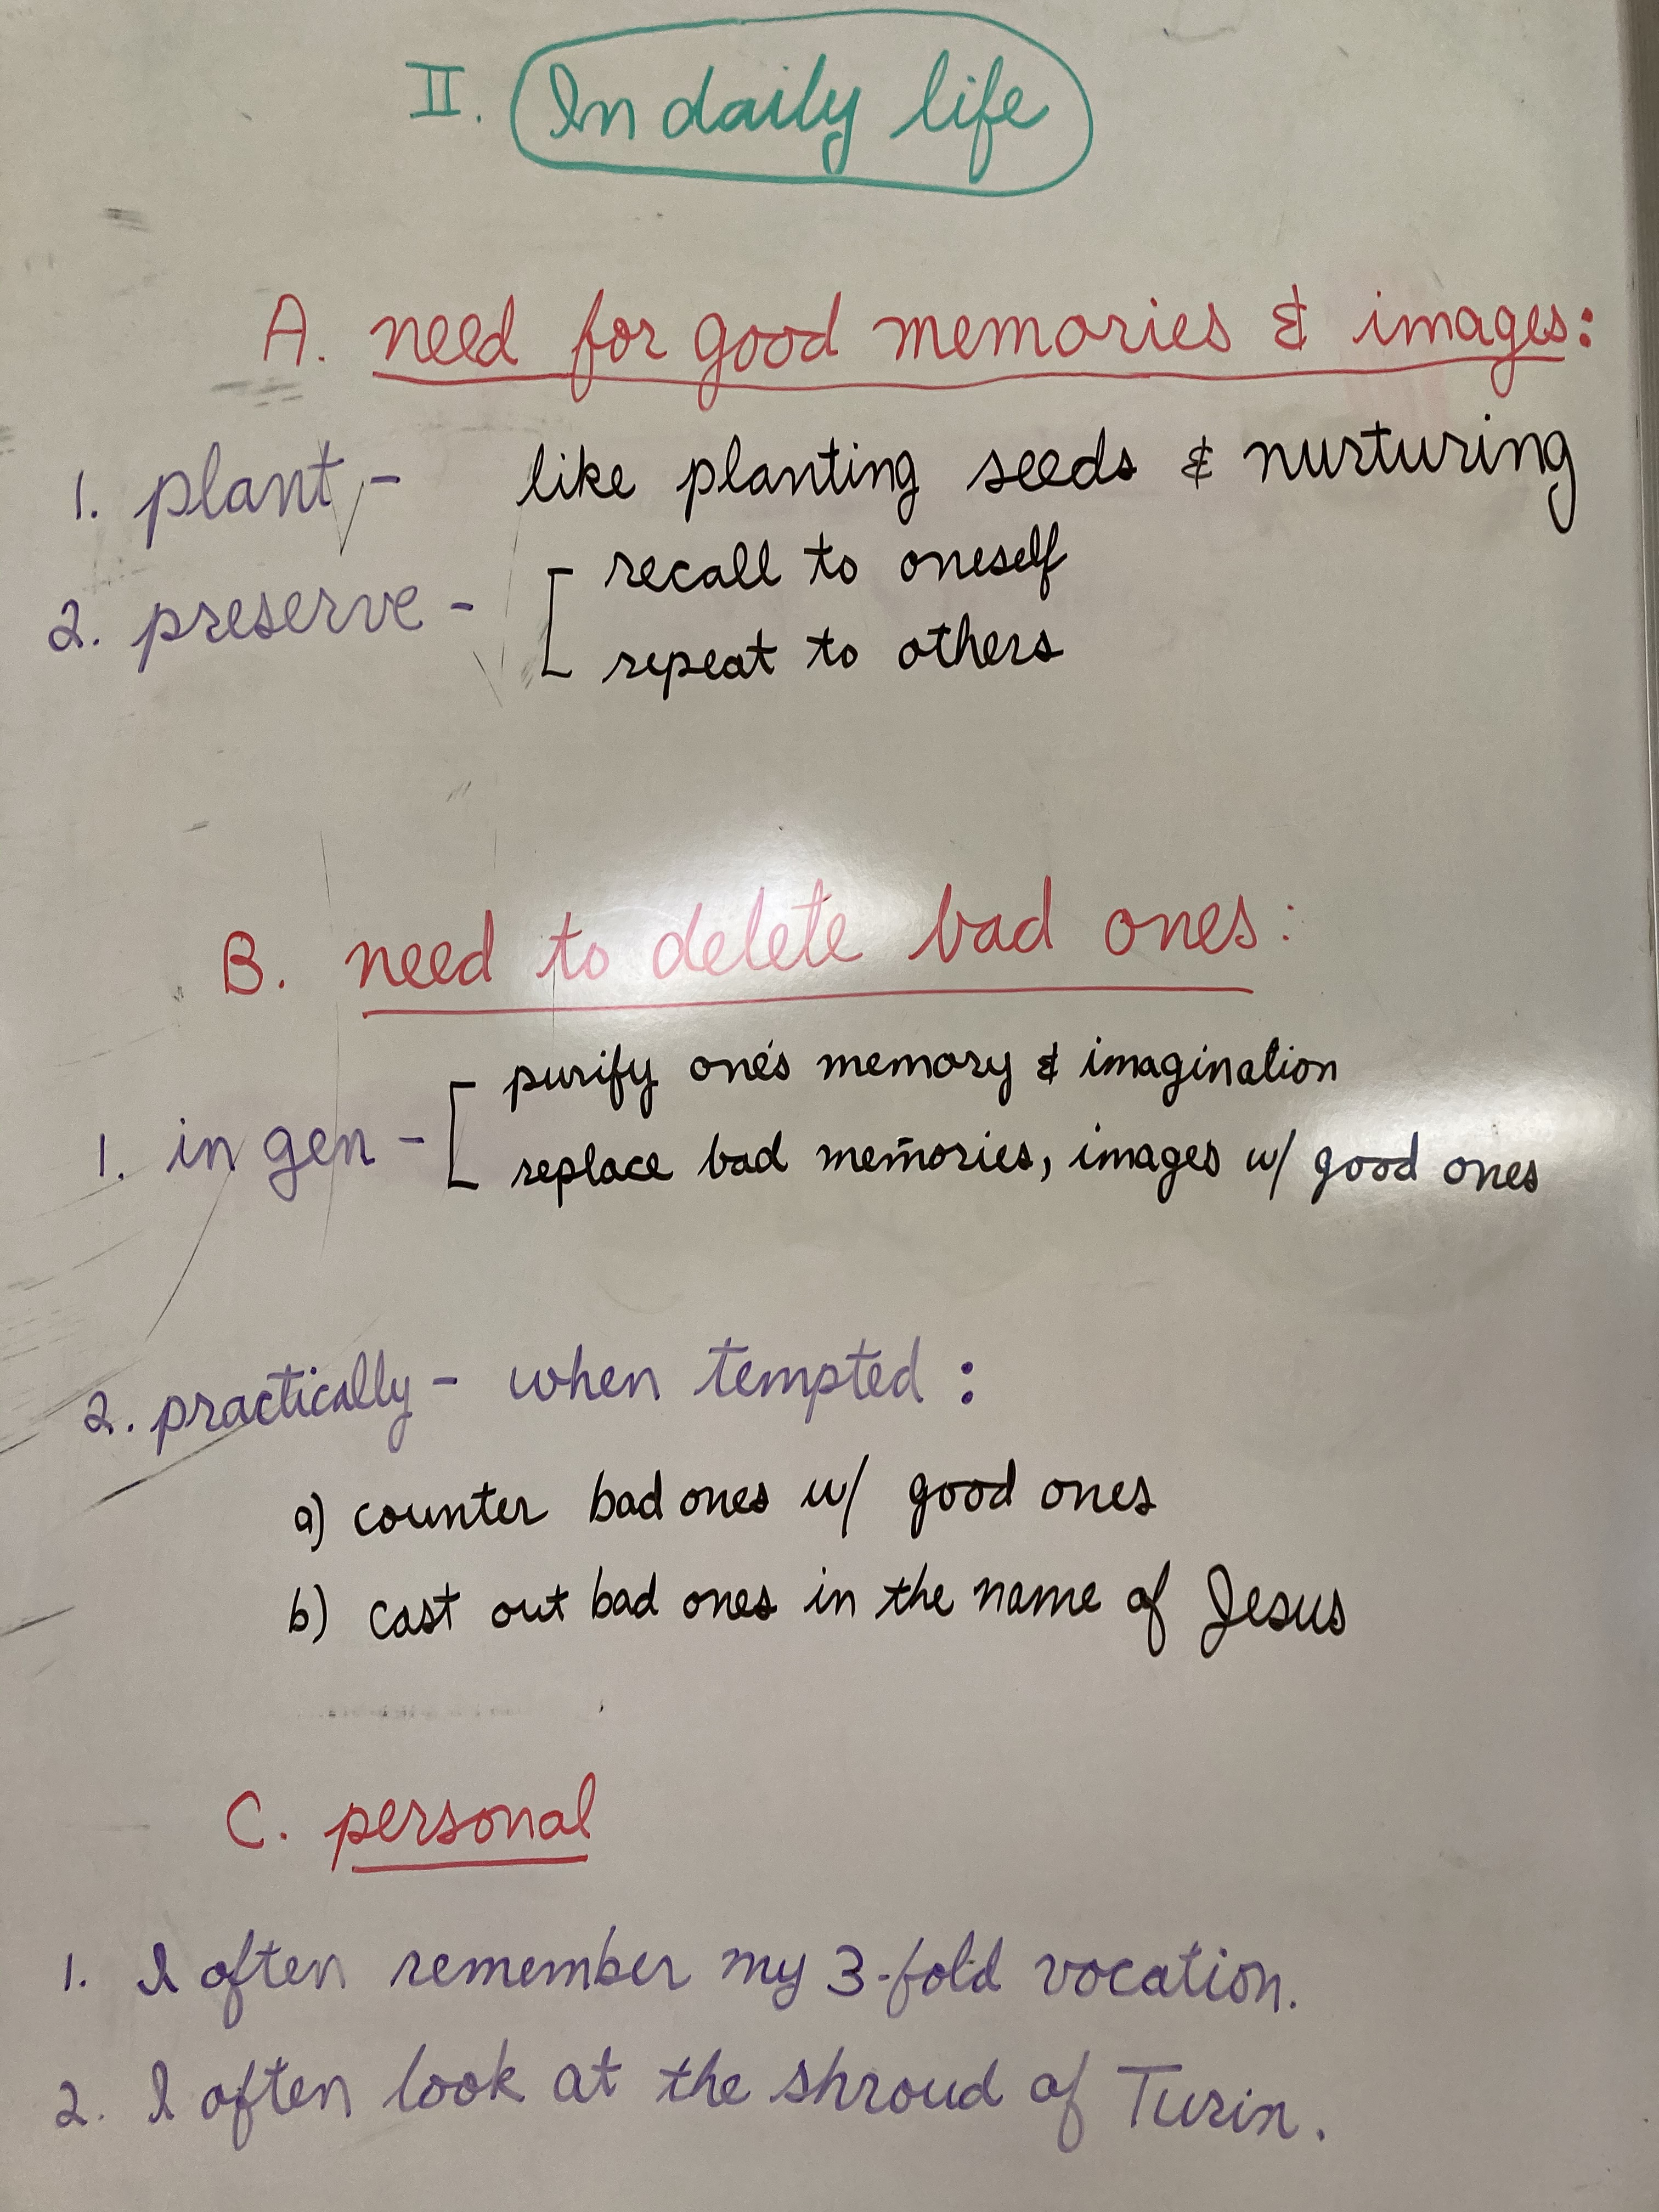 II. In daily life
A. need for good memories & images:
1. plant - like planting seeds & nurturing
2. preserve - [ recall to oneself
repeat to others
B. need to delete bad ones:
1. in gen - [ purify one's memory & imagination
replace bad memories, images w/ good ones
2. practically - when tempted :
a) counter bad ones w/ good ones
b) cast out bad ones in the name of Jesus
C. personal
1. I often remember my 3-fold vocation.
2. I often look at the shroud of Turin.